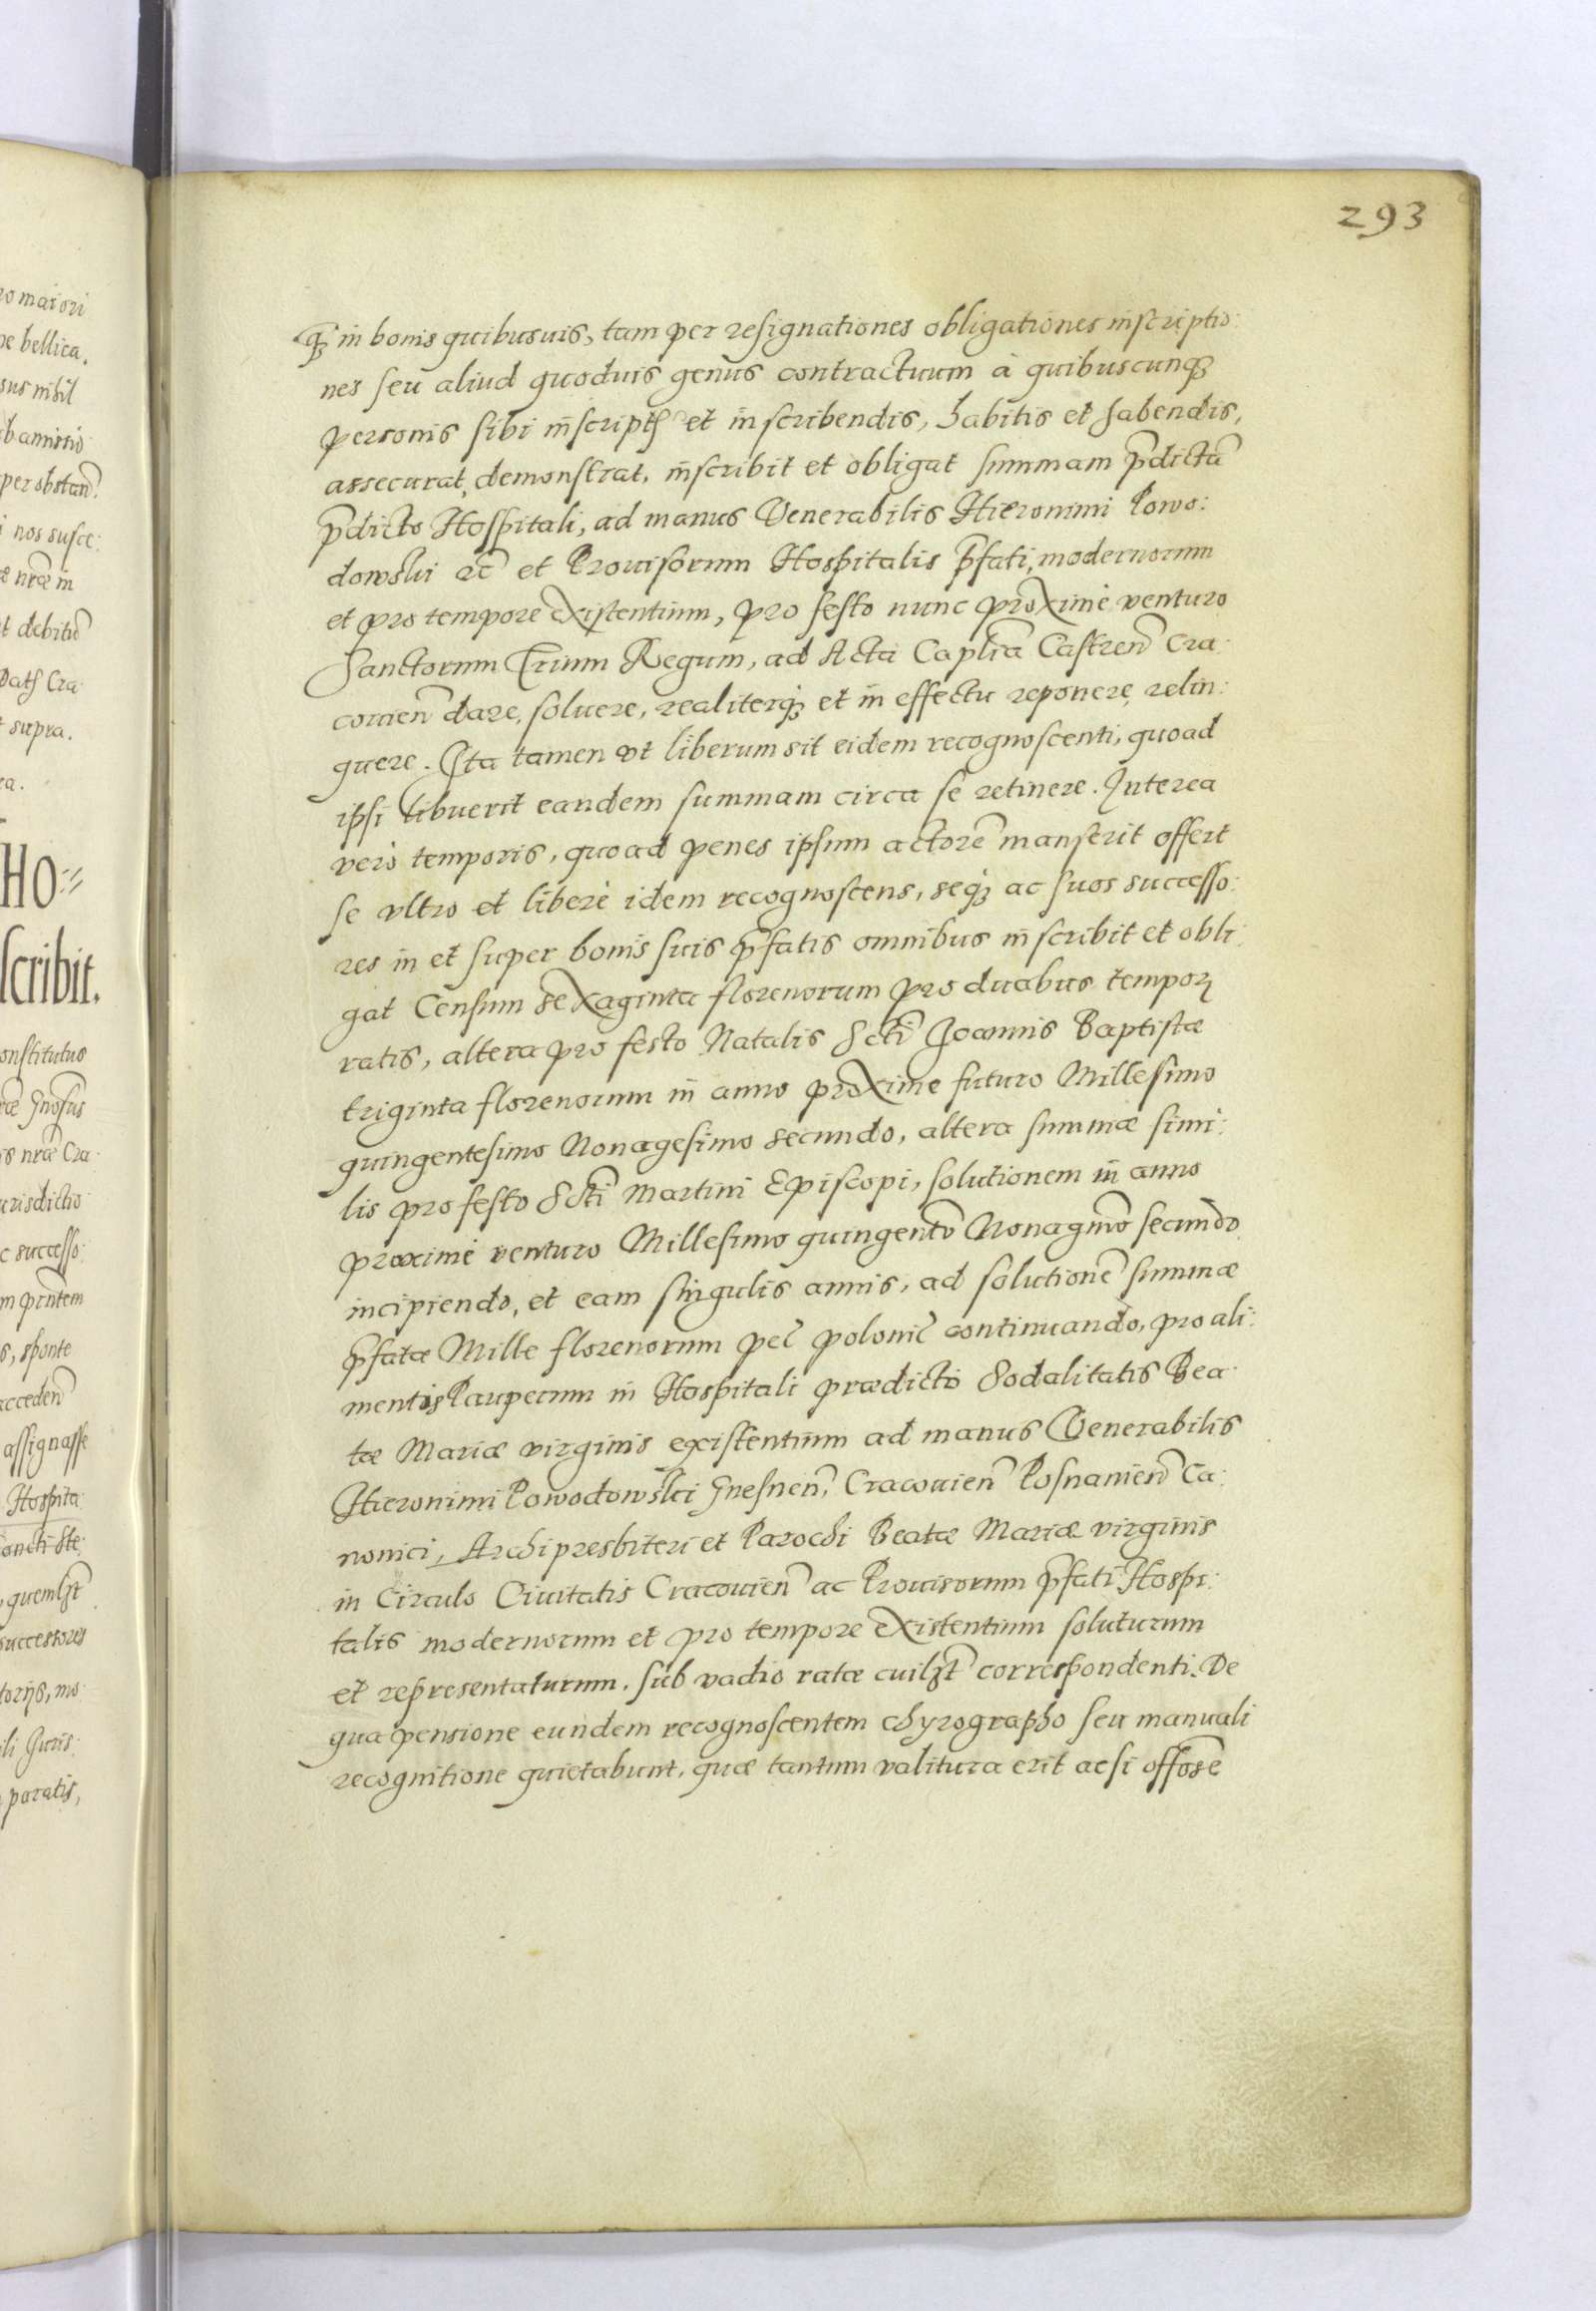 293
q3 in bonis quibusuis, tam per resignationes obligationes inscriptio:
nes seu aliud quoduis genus contractuum à quibuscunq3
personis sibi inscript et inscribendis, habitis et habendis,
assecurat, demonstrat, inscribit et obligat summam p̄dictā
p̄dicto Hospitali, ad manus Venerabilis Hieronimi Powo:
dowski rc̄ et Prouisorum Hospitalis p̄fati, modernorum
et pro tempore existentium, pro festo nunc proximè venturo
Sanctorum Trium Regum, ad Acta Caplīa Castren̄ Cra:
couien̄ dare, soluere, realiterq3 et in effectu reponere, relin:
quere. Ita tamen vt liberum sit eidem recognoscenti, quoad
ipsi libuerit eandem summam circa se retinere. Interea
verò temporis, quoad penes ipsum actorē manserit offert
se vltro et liberè idem recognoscens, seq3 ac suos successo:
res in et super bonis suis p̄fatis omnibus inscribit et obli:
gat Censum sexaginta florenorum pro duabus tempor
ratis, altera pro festo Natalis Sctī Joannis Baptistæ
triginta florenorum in anno proxime futuro Millesimo
quingentesimo Nonagesimo secundo, altera summæ simi:
lis pro festo Sctī Martini Episcopi, solutionem in anno
proximè venturo Millesimo quingentō Nonagm̄o secundo
incipiendo, et eam singulis annis, ad solutionē summæ
p̄fatæ Mille florenorum pec̄ polonic̄ continuando, pro ali:
mentis Pauperum in Hospitali prædicto Sodalitatis Bea:
tæ Mariæ virginis existentium ad manus Venerabilis
Hieronimi Powodowski Gnesnen̄, Cracouien̄ Posnanien̄ Ca:
nonici, Archipresbiteri et Parochi Beatæ Mariæ virginis
in Circulo Ciuitatis Cracouien̄ ac Prouisorum p̄fati Hospi:
talis modernorum et pro tempore existentium soluturum
et representaturum. sub vadio ratæ cuilzt̄ correspondenti. De
qua pensione eundem recognoscentem chyrographo seu manuali
recognitione quietabunt, quæ tantum valitura erit acsi offōse